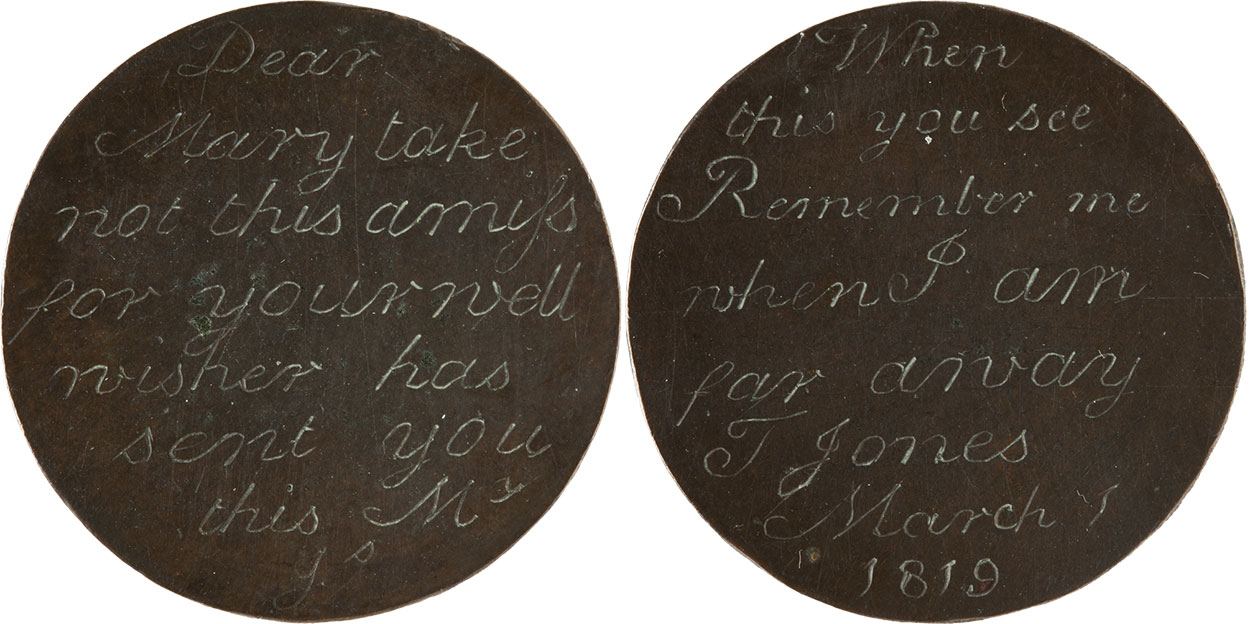 Dear
Mary take
not this amiſs
for your well
wisher has
sent you
this Mʸ
J s
When
this you see
Remember me
when I am
far away
T Jones
March 1
1819